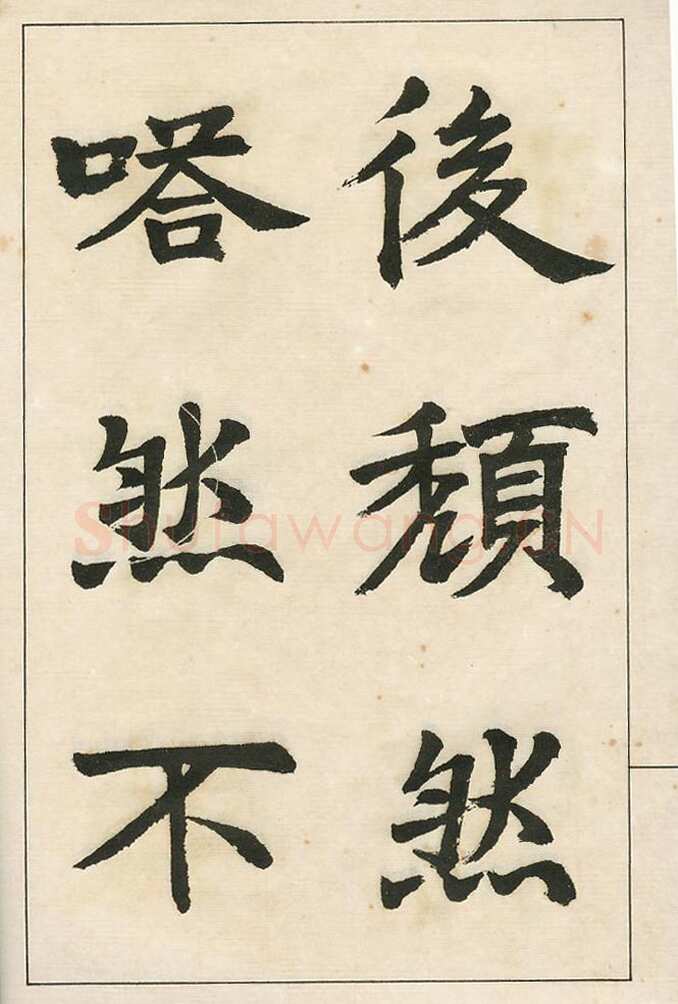 後頹然
嗒然不
Shufawang.CN